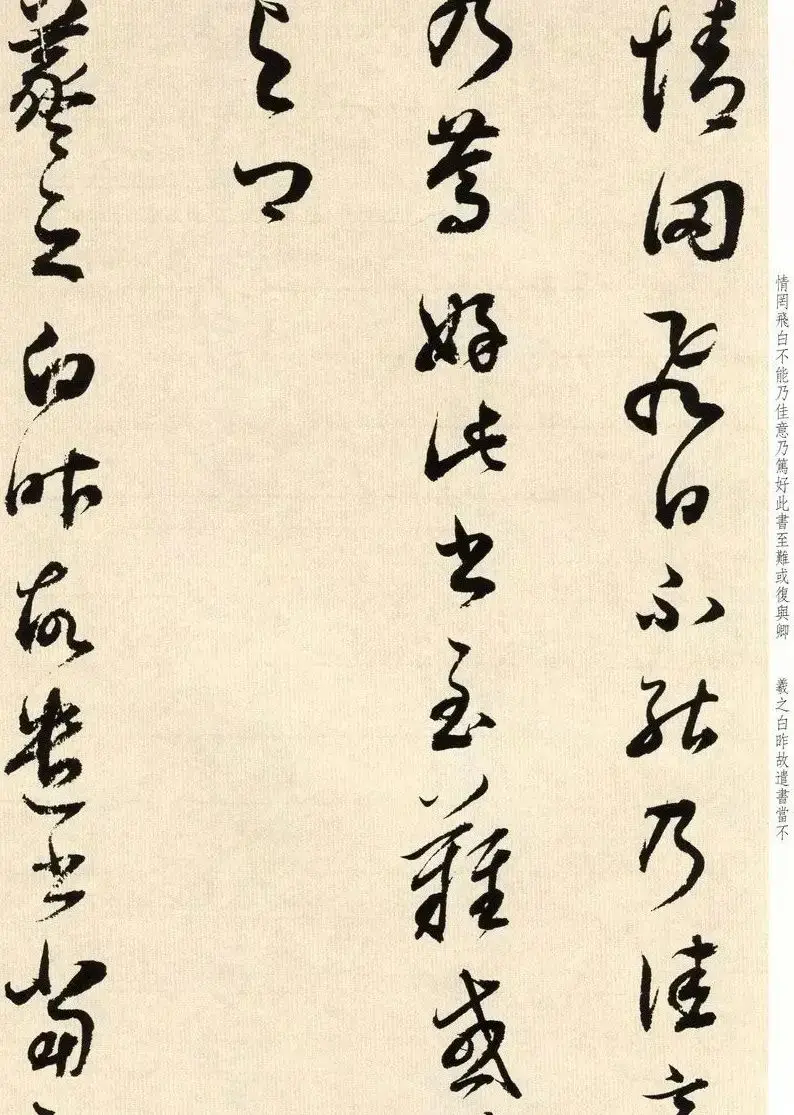 情罔飛白不能乃佳意
乃篤好此書至難或
與卿
羲之白昨故遣書當不
情罔飛白不能乃佳意乃篤好此書至難或復與卿
羲之白昨故遣書當不